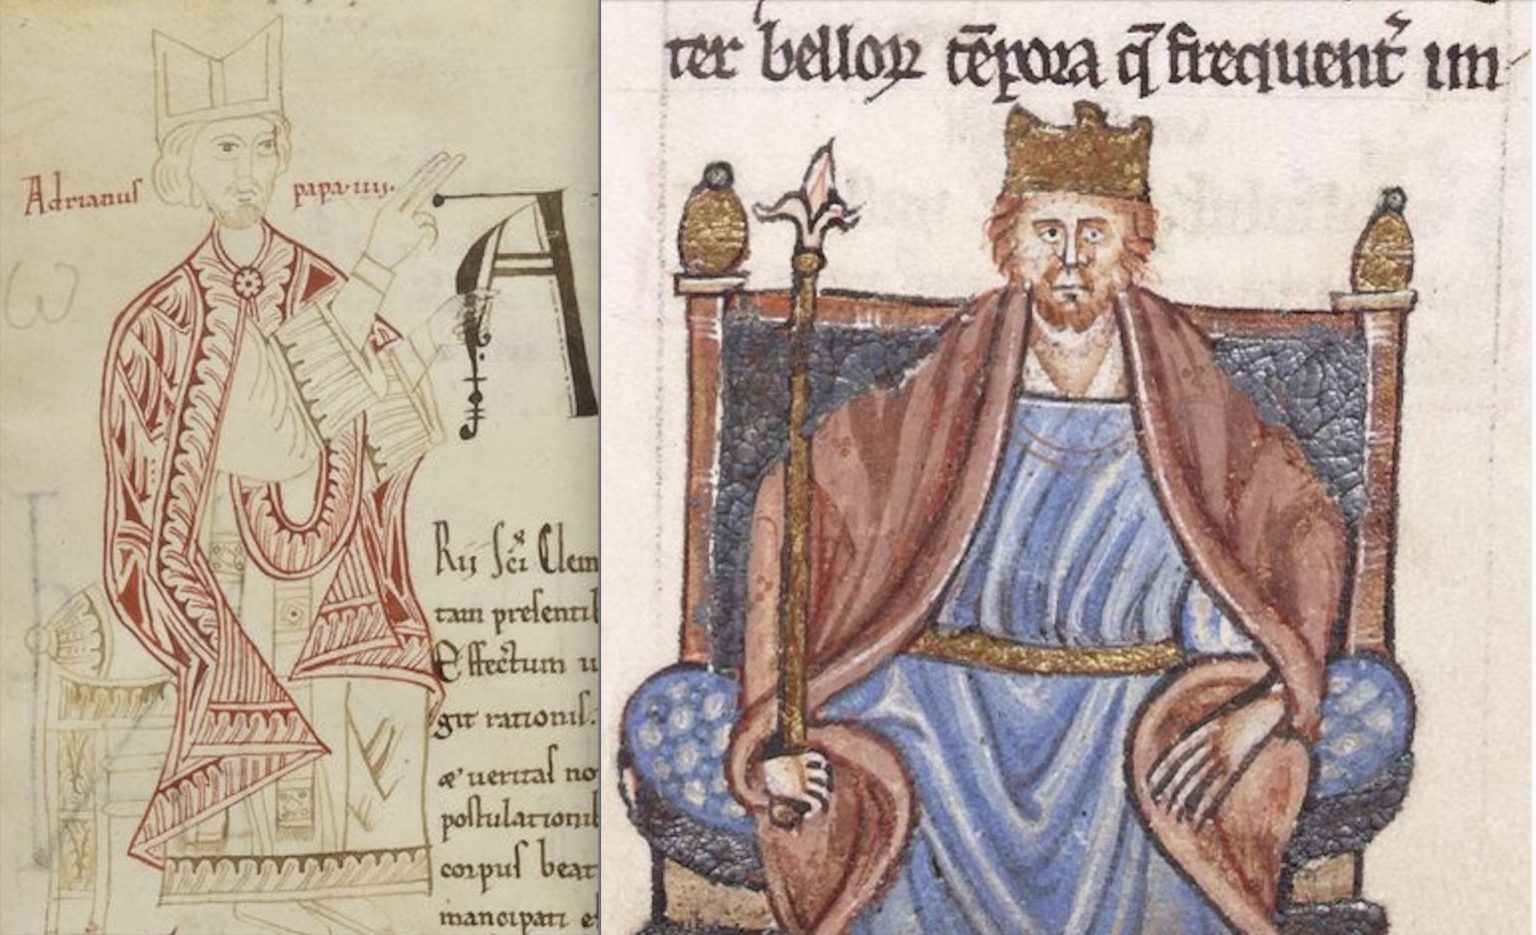 Adrianus papa·iiii·
A
Rii sc̄i Clem
tam presenti
Effectum u
git rationis.
æ ueritas no
postulationib
corpus beat
mancipati et
ter belloꝝ tēpora q̄ frequent᷑ im